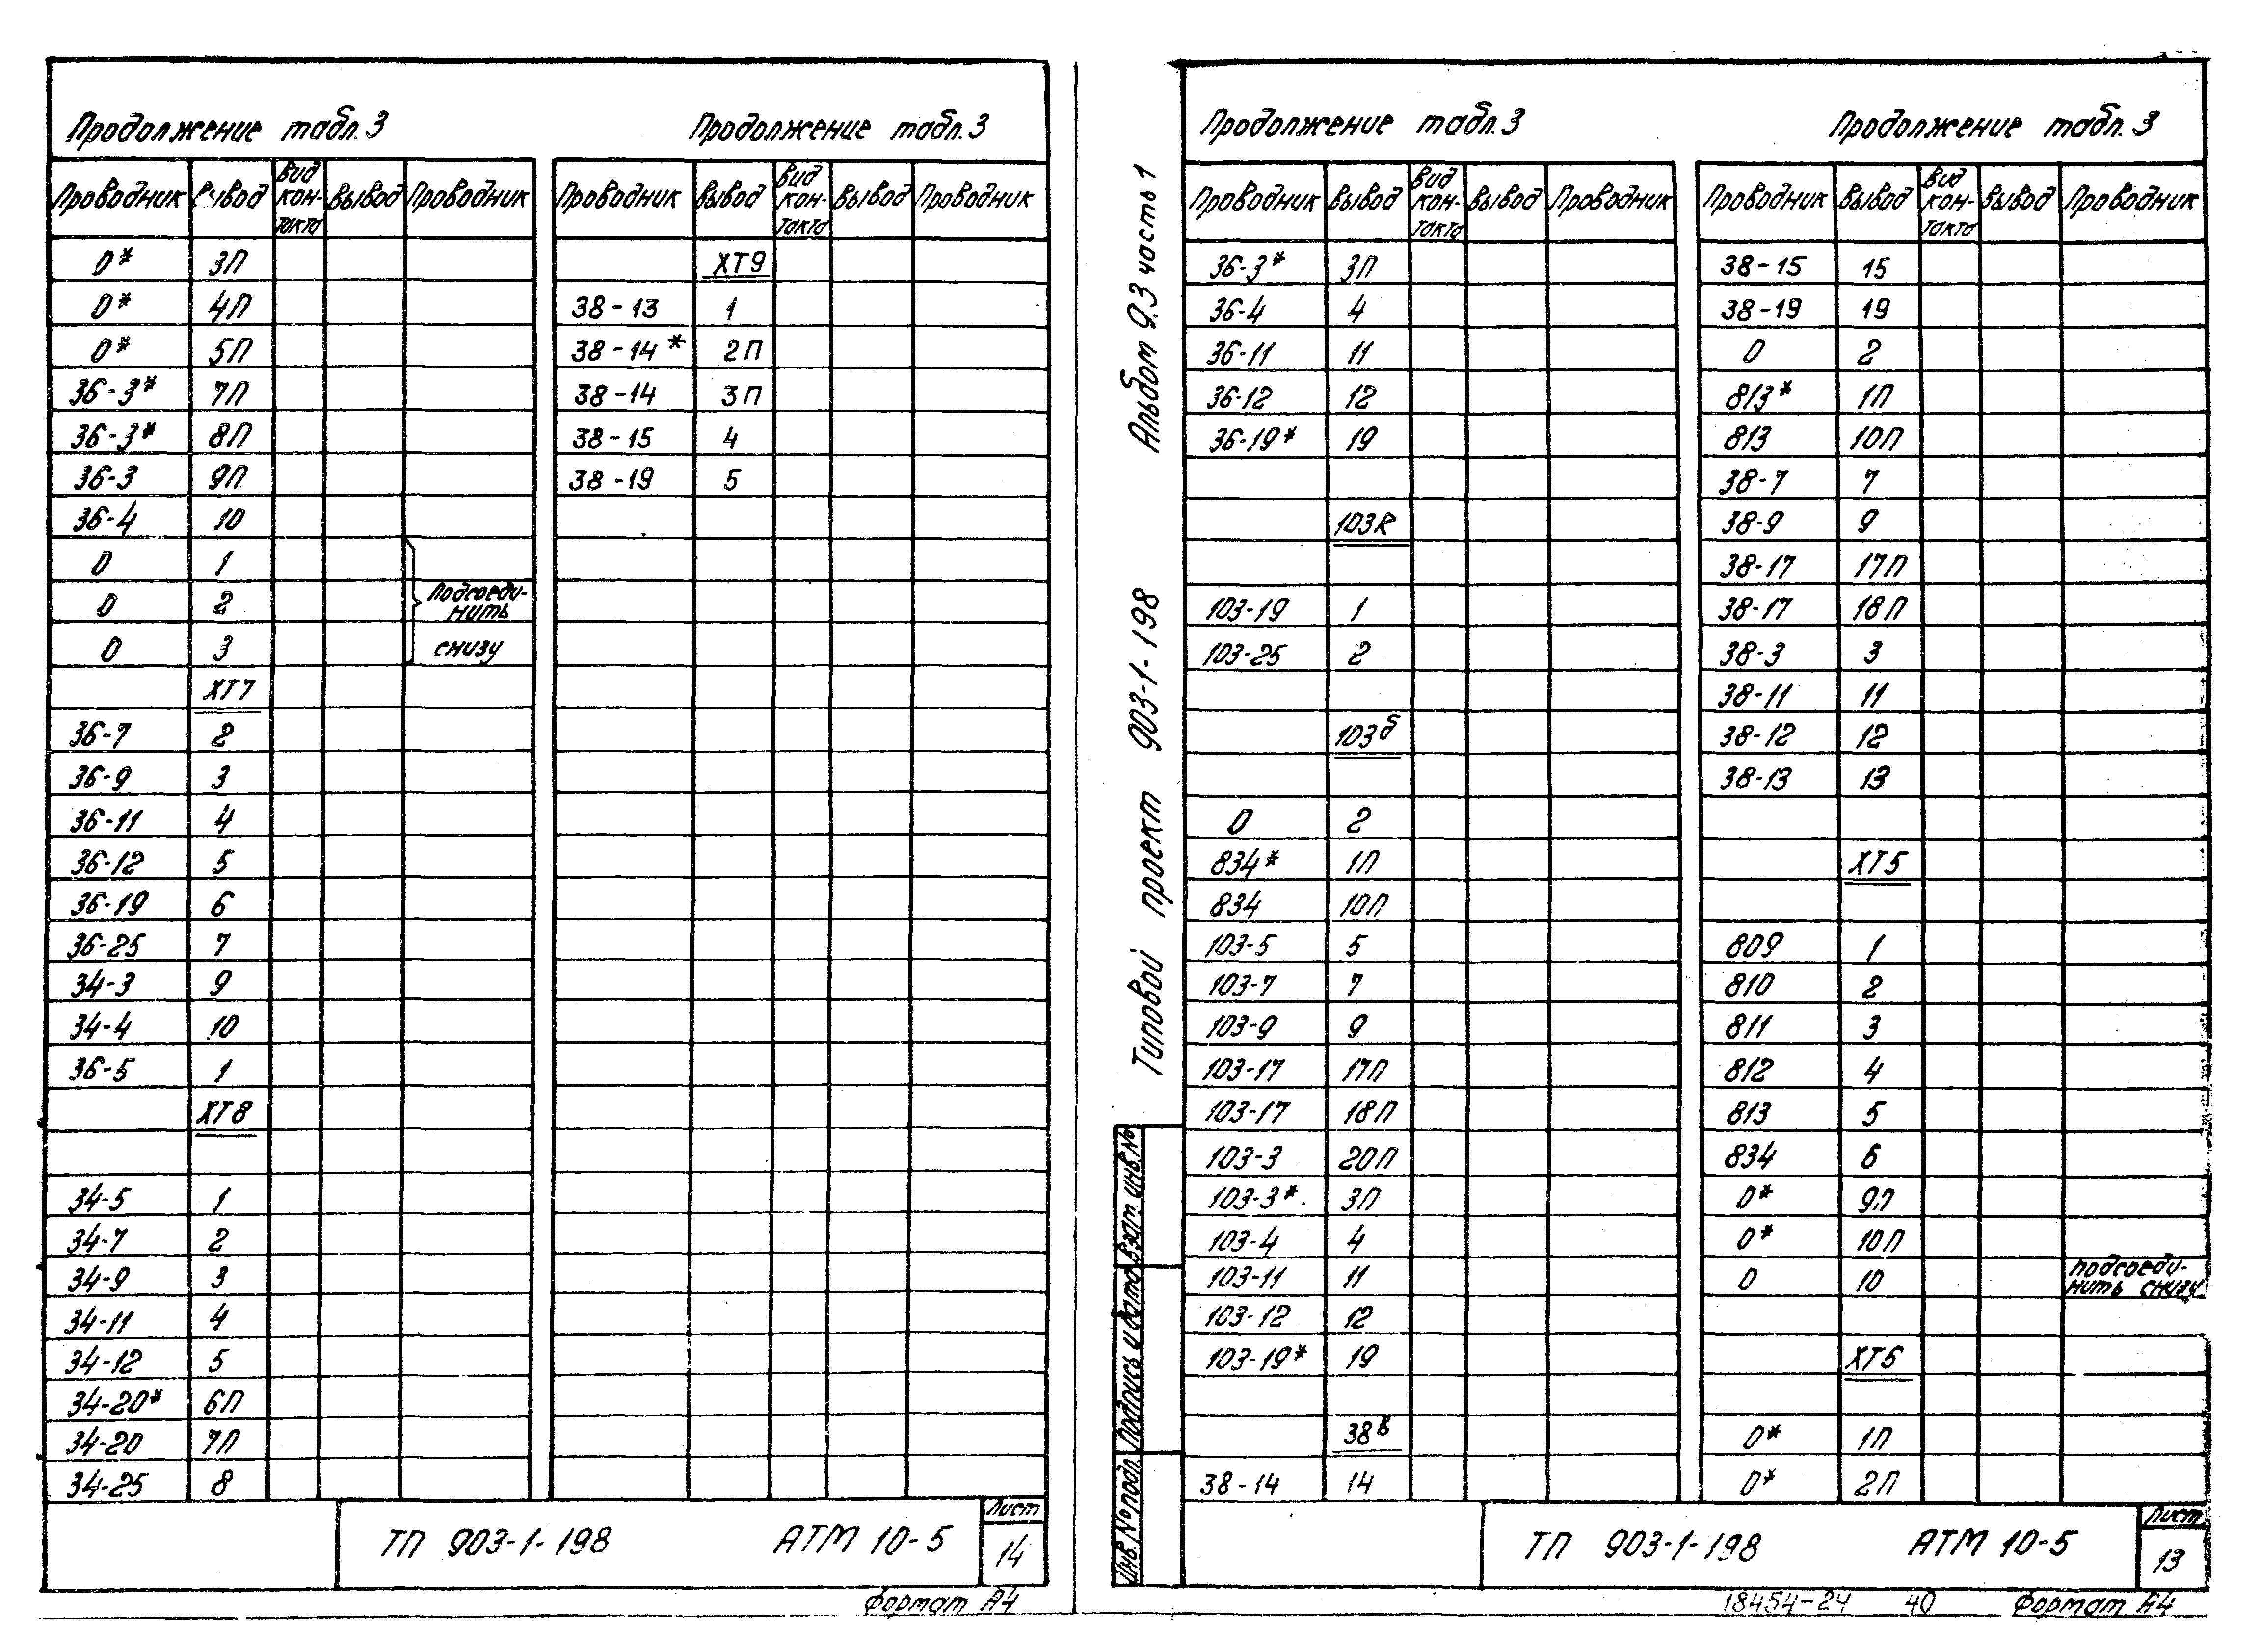 Продолжение табл.3
Проводник Вывод Вид кон-такта Вывод Проводник
0* 3П
0* 4П
0* 5П
36-3* 7П
36-3* 8П
36-3 9П
36-4 10
0 1
0 2 Подсоеди-
нить
0 3 снизу
ХТ7
36-7 2
36-9 3
36-11 4
36-12 5
36-19 6
36-25 7
34-3 9
34-4 10
36-5 1
ХТ8
34-5 1
34-7 2
34-9 3
34-11 4
34-12 5
34-20* 6П
34-20 7П
34-25 8
Продолжение табл.3
Проводник Вывод Вид кон-такта Вывод Проводник
ХТ9
38-13 1
38-14* 2П
38-14 3П
38-15 4
38-19 5
ТП 903-1-198 АТМ 10-5
Лист
14
Формат А4
Альбом 9.3 часть 1
Типовой проект 903-1-198
Взам. инв.№
Подпись и дата
Инв.№подл.
Продолжение табл.3
Проводник Вывод Вид кон-такта Вывод Проводник
36-3* 3П
36-4 4
36-11 11
36-12 12
36-19* 19
103R
103-19 1
103-25 2
103б
0 2
834* 1П
834 10П
103-5 5
103-7 7
103-9 9
103-17 17П
103-17 18П
103-3 20П
103-3* 3П
103-4 4
103-11 11
103-12 12
103-19* 19
38в
38-14 14
Продолжение табл.3
Проводник Вывод Вид кон-такта Вывод Проводник
38-15 15
38-19 19
0 2
813* 1П
813 10П
38-7 7
38-9 9
38-17 17П
38-17 18П
38-3 3
38-11 11
38-12 12
38-13 13
ХТ5
809 1
810 2
811 3
812 4
813 5
834 6
0* 9П
0* 10П
0 10 подсоеди-
нить снизу
ХТ6
0* 1П
0* 2П
ТП 903-1-198 АТМ 10-5
Лист
13
18454-24 40 Формат А4